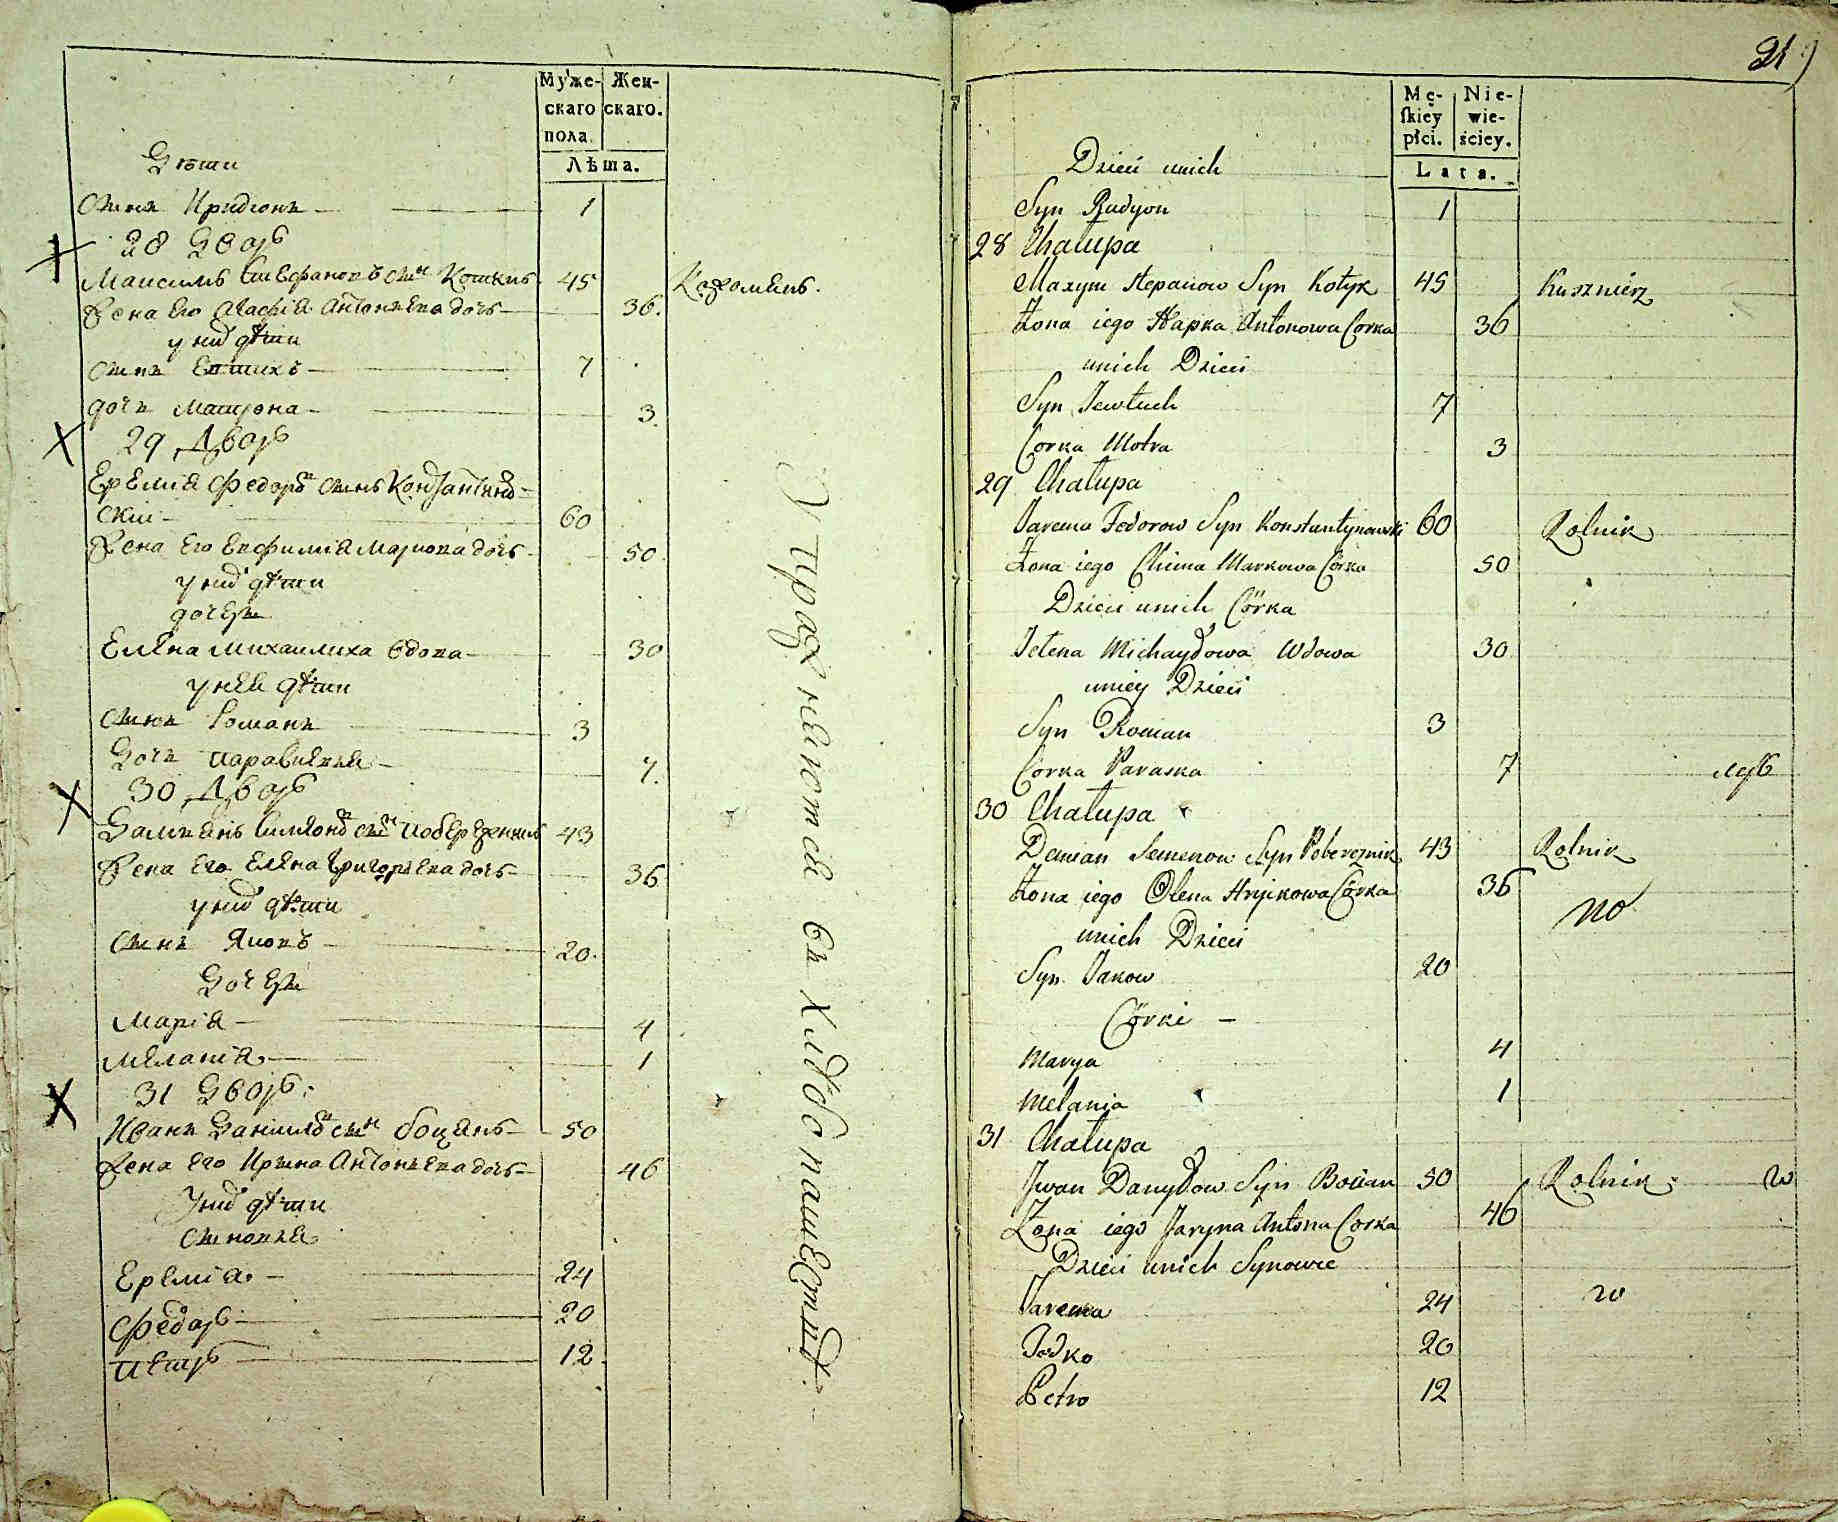 Муже-
скаго
пола.
Жен-
скаго.
Лѣта.
Дѣти
сынъ Иридионъ 1
28 Дворъ
Максимъ Стефановъ сынъ Котыкъ 45 Кожомякъ.
Жена его Агафія Антоньева дочь 36.
у них дѣти
сынъ Евтихъ 7
дочь Матрона 3
29 Дворъ
Еремія Федоровъ сынъ Константинов-
ски 60
Жена его Евфимія Маркова дочь 50
у них дѣти
дочеры
Елена Михаилиха вдова 30
у нея дѣти
сынъ Романъ 3
Дочь Паравскея 7.
30 Дворъ
Дамиянъ Симионов сынъ Побережникъ 43
Жена его Елена Григорьева дочь 36
у них дѣти
сынъ Яковъ 20.
Дочеры
Марія 4
Меланія 1
31 Дворъ
Иванъ Даниилов сынъ боцянъ 50
Жена его Ирина Антоньева дочь 46
У них дѣти
сыновья
Еремія 24
Федоръ 20
Петръ 12
Упражняются въ хлѣбопашествѣ.
21
Mę-
skiey
płci.
Nie-
wie-
ściey.
Lata.
Dzieci unich
Syn Rudyon 1
28 Chałupa
Maxym Stepanow Syn Kotyk 45 Kusznierz
Żona iego Hapka Antonowa Corka 36
unich Dzieci
Syn Jewtuch 7
Corka Motra 3
29 Chałupa
Jarema Fedorow Syn Konstantynowski 60 Rolnik
Żona iego Chima Markowa Córka 50
Dzieci unich Córka
Jelena Michayłowa Wdowa 30
uniey Dzieci
Syn Roman 3
Corka Paraska 7
30 Chałupa
Demian Semenow Syn Pobereznik 43 Rolnik
Żona iego Olena Hryćkowa Córka 36
unich Dzieci
Syn Jakow 20
Córki
Marya 4
Melania 1
31 Chałupa
Jwan Danyłow Syn Bocian 50 Rolnik
Żona iego Jaryna Antona Corka 46
Dzieci unich Synowie
Jarema 24
Fedko 20
Petro 12